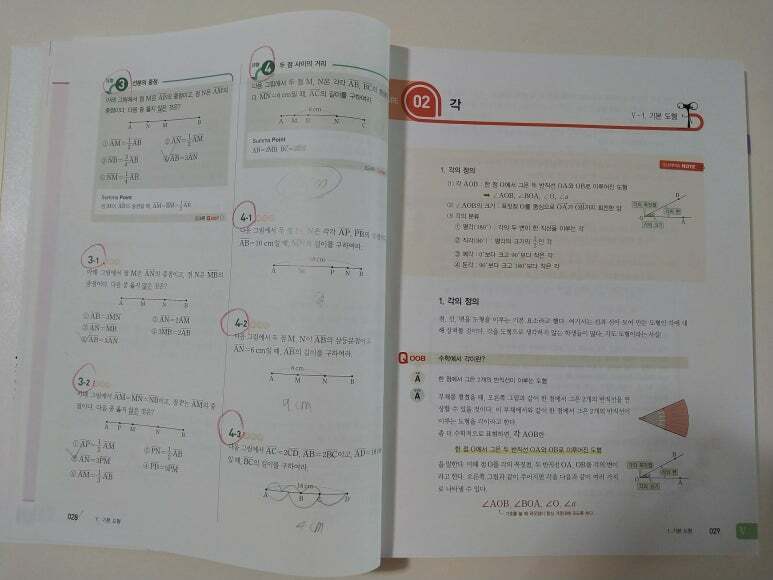 유형 3 선분의 중점
아래 그림에서 점 M은 AB의 중점이고, 점 N은 AM의
중점이다. 다음 중 옳지 않은 것은?
A N M B
① AM=1/2AB ② AN=1/2AM
③ NB=3/4AB ④ AB=3AN
⑤ NM=1/4AB
Summa Point
점 M이 AB의 중점일 때, AM=BM=1/2AB
3-1
아래 그림에서 점 M은 AN의 중점이고, 점 N은 MB의
중점이다. 다음 중 옳지 않은 것은?
A M N B
① AB=3MN ② AN=2AM
③ AN=MB ④ 3MB=2AB
⑤ AB=3AN
3-2
아래 그림에서 AM=MN=NB이고, 점 P는 AM의 중
점이다. 다음 중 옳지 않은 것은?
A P M N B
① AP=1/2AM ② PN=1/2AB
③ AN=3PM ④ PB=5PM
⑤ AM=1/3AB
028 V. 기본 도형
유형 4 두 점 사이의 거리
다음 그림에서 두 점 M, N은 각각 AB, BC의
다. MN=6 cm일 때, AC의 길이를 구하여라.
6 cm
A M B N C
Summa Point
AB=2MB, BC=2
4-1
다음 그림에서 두 점 N은 각각 AP, PB의
AB=16 cm일 때, 의 길이를 구하여라.
A P N B
4-2
다음 그림에서 두 점 M, N이 AB의 삼등분점이고
AN=6 cm일 때, AB의 길이를 구하여라.
6 cm
A M N B
9 cm
4-3
다음 그림에서 AC=2CD, AB=2BC이고, AD=18 cm
일 때, BC의 길이를 구하여라.
18 cm
A B C D
4 cm
02 각
V-1. 기본 도형
SUMMA NOTE
1. 각의 정의
(1) 각 AOB : 한 점 O에서 그은 두 반직선 OA와 OB로 이루어진 도형
➡ ∠AOB, ∠BOA, ∠O, ∠a
(2) ∠AOB의 크기 : 꼭짓점 O를 중심으로 OA가 OB까지 회전한 양
(3) 각의 분류
① 평각(180°) : 각의 두 변이 한 직선을 이루는 각
② 직각(90°) : 평각의 크기의 1/2인 각
③ 예각 : 0°보다 크고 90°보다 작은 각
④ 둔각 : 90°보다 크고 180°보다 작은 각
각의 꼭짓점
각의 변
각의 크기
1. 각의 정의
점, 선, 면을 도형을 이루는 기본 요소라고 했다. 여기서는 선과 선이 모여 만든 도형인 각에 대
해 살펴볼 것이다. 각을 도형으로 생각하지 않는 학생들이 많다. 각도 도형이라는 사실!
Q 008 수학에서 각이란?
A 한 점에서 그은 2개의 반직선이 이루는 도형
A 부채를 펼쳤을 때, 오른쪽 그림과 같이 한 점에서 그은 2개의 반직선을 연
상할 수 있을 것이다. 이 부채에서와 같이 한 점에서 그은 2개의 반직선이
이루는 도형을 각이라고 한다.
좀 더 수학적으로 표현하면, 각 AOB란
한 점 O에서 그은 두 반직선 OA와 OB로 이루어진 도형
을 말한다. 이때 점 O를 각의 꼭짓점, 두 반직선 OA, OB를 각의 변이
라고 한다. 오른쪽 그림과 같이 주어지면 각을 다음과 같이 여러 가지
로 나타낼 수 있다.
각의 꼭짓점
각의 변
각의 크기
∠AOB, ∠BOA, ∠O, ∠a
1. 기본 도형 029
V